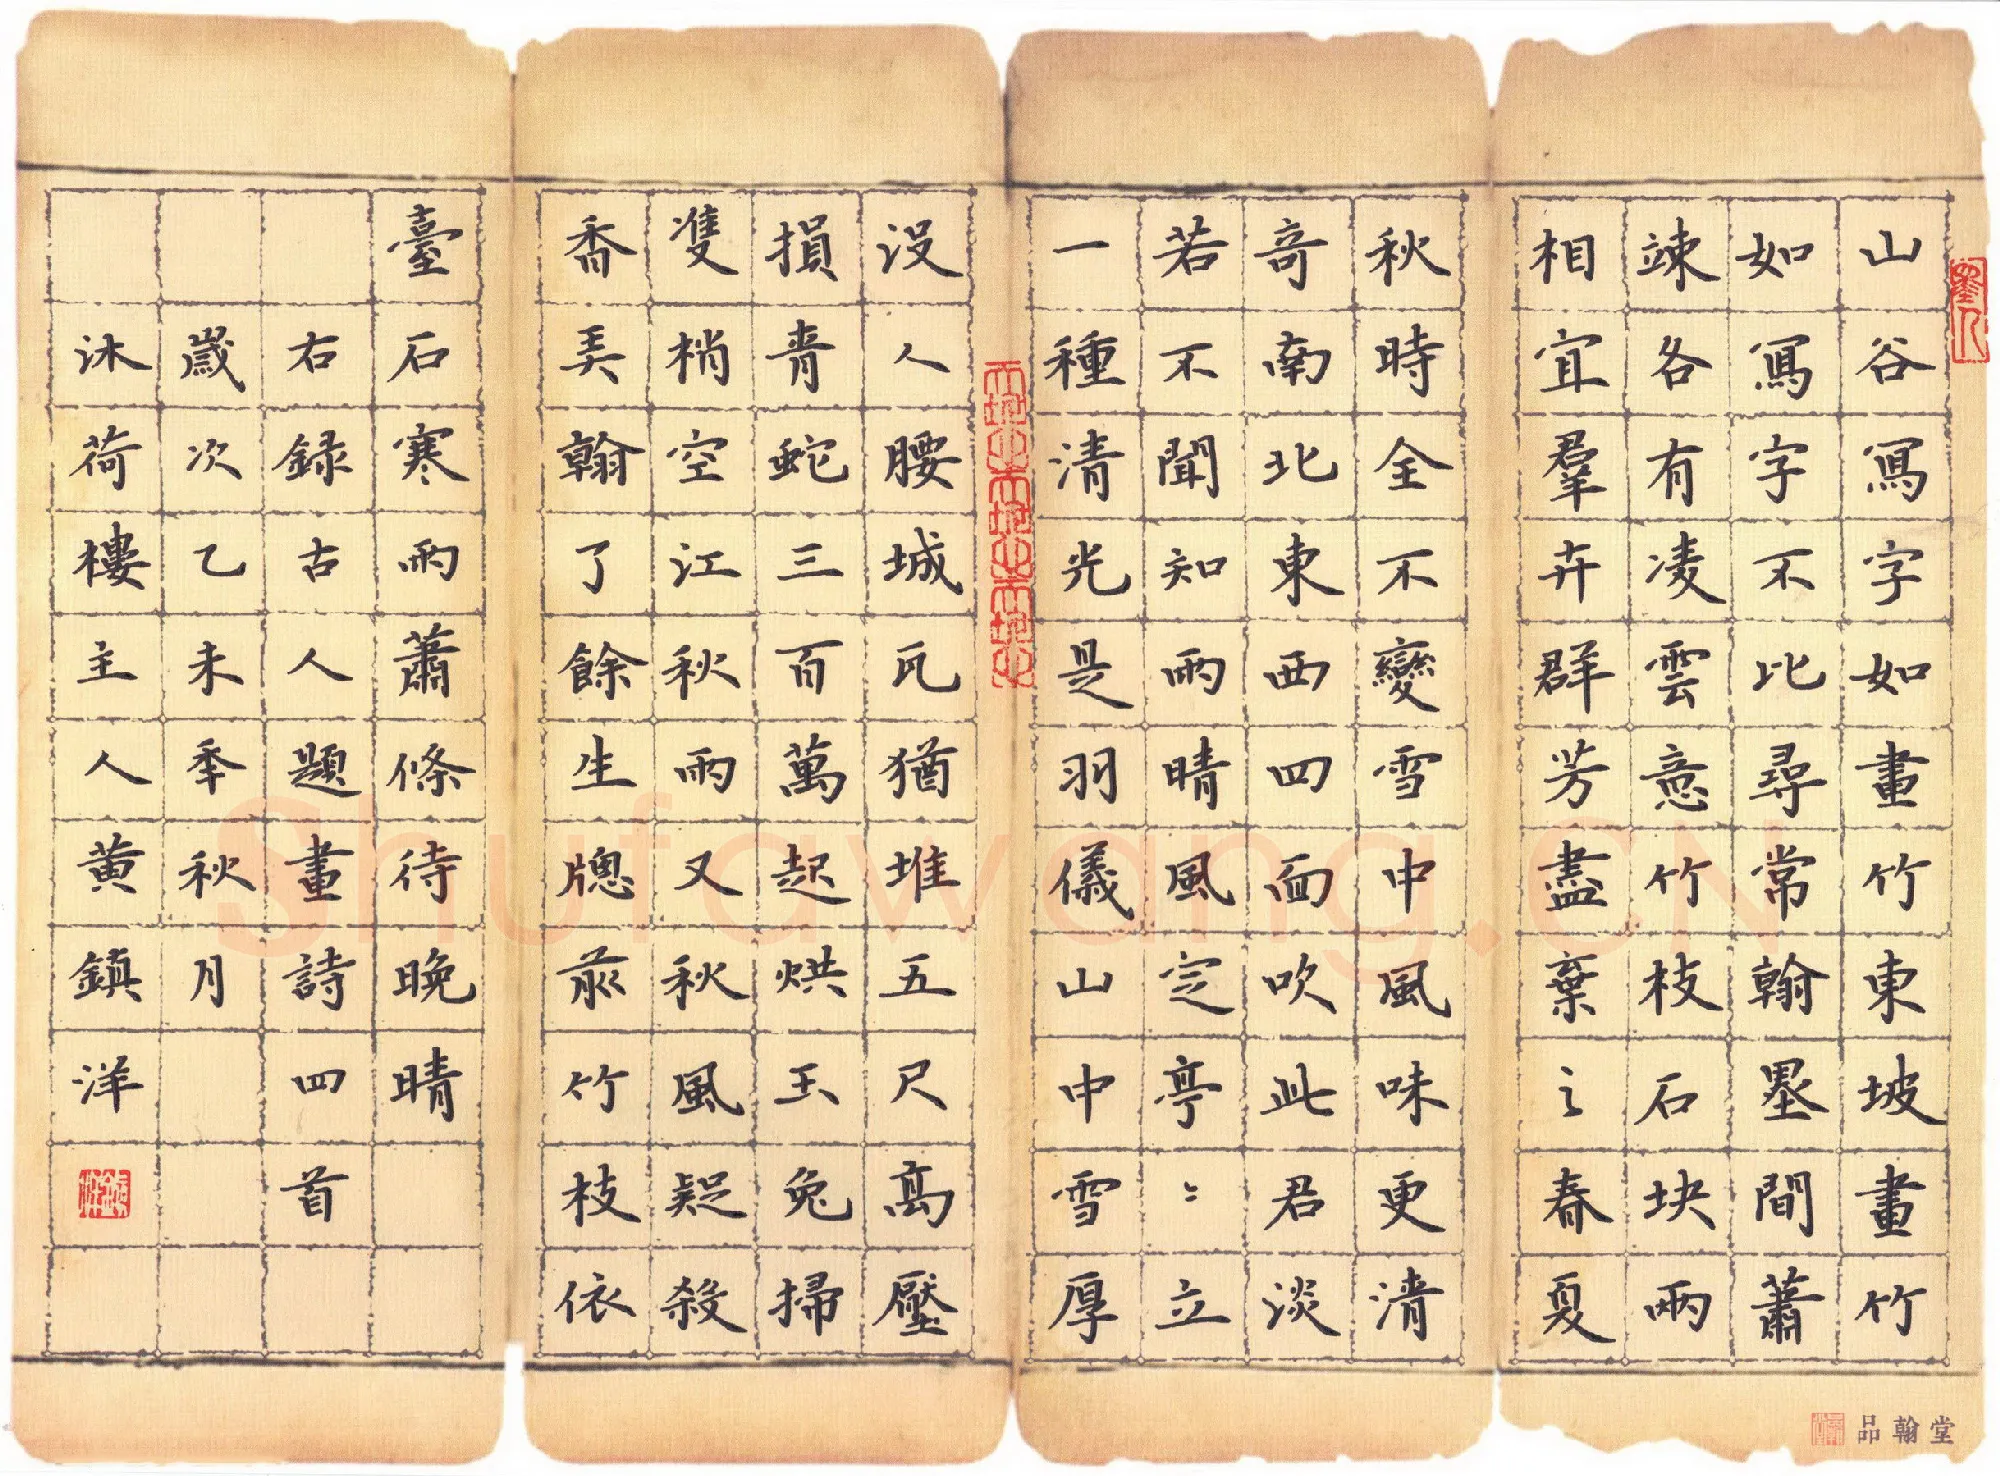 山谷寫字如畫竹東坡畫竹
如寫字不比尋常翰墨間蕭
竦各有凌雲意竹枝石块兩
相宜羣卉群芳盡棄之春夏
秋時全不變雪中風味更清
奇南北東西四面吹此君淡
若不聞知雨晴風定亭〻立
一種清光是羽儀山中雪厚
没人腰城瓦猶堆五尺高壓
損青蛇三百萬起烘玉兔掃
雙梢空江秋雨又秋風疑殺
喬弄翰了餘生牕前竹枝依
臺石寒雨蕭條待晚晴
右録古人題畫詩四首
歲次乙未季秋月
沐荷樓主人黄鎮洋
品翰堂
Shufawang.CN